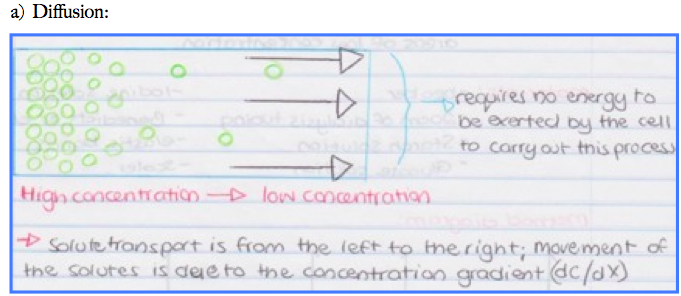 a) Diffusion:
requires no energy to
be exerted by the cell
to carry out this process
High concentration → low concentration
→ Solute transport is from the left to the right; movement of
the solutes is due to the concentration gradient (dc/dx)